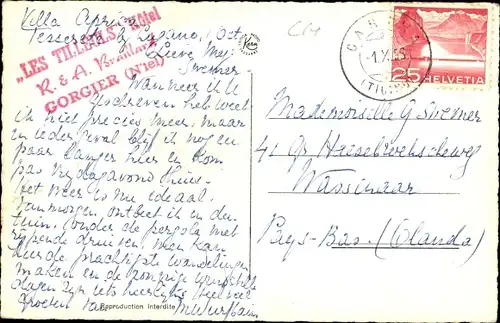 Villa Aprica
Tesserete b/ Lugano, 1 Oct.
Lieve Mej.
Swemer
Wanneer ik U
geschreven heb weet
ik niet precies meer, maar
in ieder geval blijf ik nog een
paar langer hier en kom
pas Vrijdagavond thuis.
Het weer is nu ideaal.
Vanmorgen ontbeet ik in de
tuin, onder de pergola met
rijpende druiven. Men kan
hier de prachtigste wandelingen
maken en de zonnige
dagen zijn iets heerlijks. Heel veel
groeten van
"LES TILLEULS" Hôtel
R. & A.
GORGIER (Ntel)
Reproduction interdite
CH
CA
-1.X.55
(TICINO)
25 HELVETIA
Mademoiselle G Swemer
41 Gr Haesebroekscheweg
Wassenaar
Pays-Bas (Olanda)